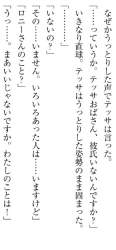 なぜかうっとりした声でテッサは言った。
「……っていうか。テッサおばさん、彼氏いないんですか？」
いきなり直球。テッサはうっとりした姿勢のまま固まった。
「………」
「いないの？」
「その……いません。いろいろあった人は……いますけど」
「ロニーさんのこと？」
「うっ……。まあいいじゃないですか。わたしのことは！」